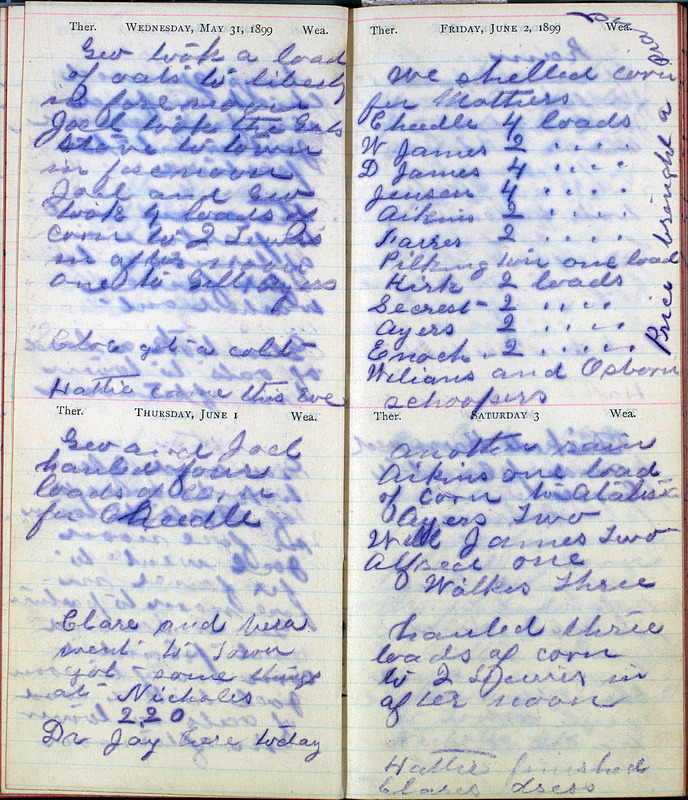 Ther. WEDNESDAY, MAY 31, 1899 Wea.
Geo took a load
of oats to Libert
in forenoon
Joel took the
stove to town
in forenoon
Joel and Geo
took 4 loads of
corn to 2
in after noon
one to Gill Ayers
got a colt
Hattie come this eve
Ther. THURSDAY, JUNE 1 Wea.
Geo and Joel
hauled four
loads of corn
for Cheedle
Clare and Vera
went to Town
got some things
at Nichols
2.20
Dr Jay here today
Ther. FRIDAY, JUNE 2, 1899 Wea.
Rain
We shelled corn
for Mothers
Cheedle 4 loads
W James 2 " "
D James 4 " "
Jensen 4 " "
Aikins 2 " "
Farres 2 " "
Pilkington one load
Kirk 2 loads
Secrest 2 " "
Ayers 2 " "
Enoch 2 " "
Wilians and Osborn
Price brought a
Ther. SATURDAY 3 Wea.
another rain
Aikins one load
of corn to
Ayers Two
Will James Two
Alfred one
Walker Three
hauled three
loads of corn
to 2 in
after noon
Hattie finished
Clares dress